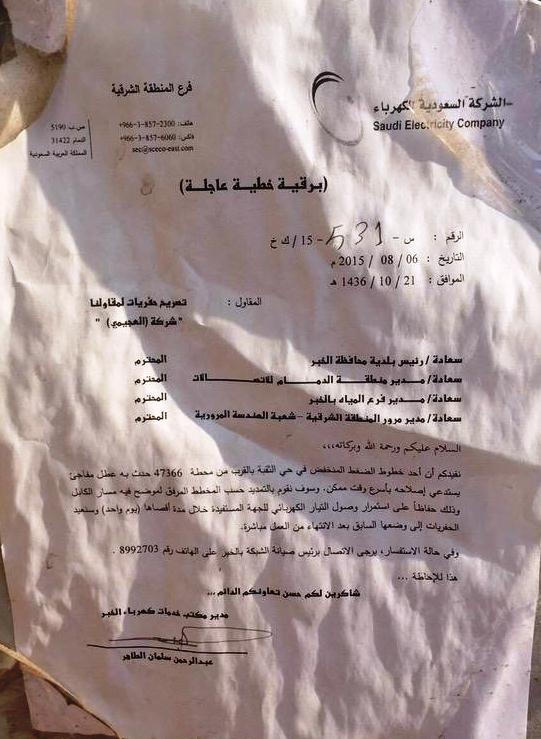 فرع المنطقة الشرقية
هاتف: 2300-857-3-966+
فاكس: 6060-857-3-966+
sec@sceco-east.com
ص.ب 5190
الدمام 31422
المملكة العربية السعودية
الشركة السعودية للكهرباء
Saudi Electricity Company
(برقية خطية عاجلة)
الرقم : س - 531 - 15 / ك خ
التاريخ : 06 / 08 / 2015 م
الموافق : 21 / 10 / 1436 هـ
المقاول : تصريح حفريات لمقاولنا
"شركة (العجيمي) "
سعادة / رئيس بلدية محافظة الخبر المحترم
سعادة / مدير منطقة الدمام للاتصالات المحترم
سعادة / مدير فرع المياه بالخبر المحترم
سعادة / مدير مرور المنطقة الشرقية – شعبة الهندسة المرورية المحترم
السلام عليكم ورحمة الله وبركاته،،،
نفيدكم أن أحد خطوط الضغط المنخفض في حي الثقبة بالقرب من محطة 47366 حدث به عطل مفاجئ
يستدعي إصلاحه بأسرع وقت ممكن. وسوف نقوم بالتمديد حسب المخطط المرفق لموضح فيه مسار الكابل
وذلك حفاظاً على استمرار وصول التيار الكهربائي للجهة المستفيدة خلال مدة أقصاها (يوم واحد) وسنعيد
الحفريات إلى وضعها السابق بعد الانتهاء من العمل مباشرة.
وفي حالة الاستفسار، يرجى الاتصال برئيس صيانة الشبكة بالخبر على الهاتف رقم 8992703.
هذا للإحاطة ...
شاكرين لكم حسن تعاونكم الدائم...
مدير مكتب خدمات كهرباء الخبر
عبدالرحمن سلمان الطاهر